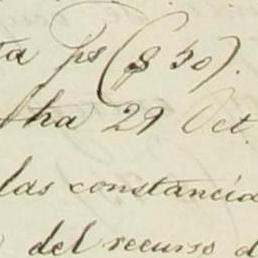 ta ps ($ 50).
fha 29 Oct.
las constancia
del recurso d